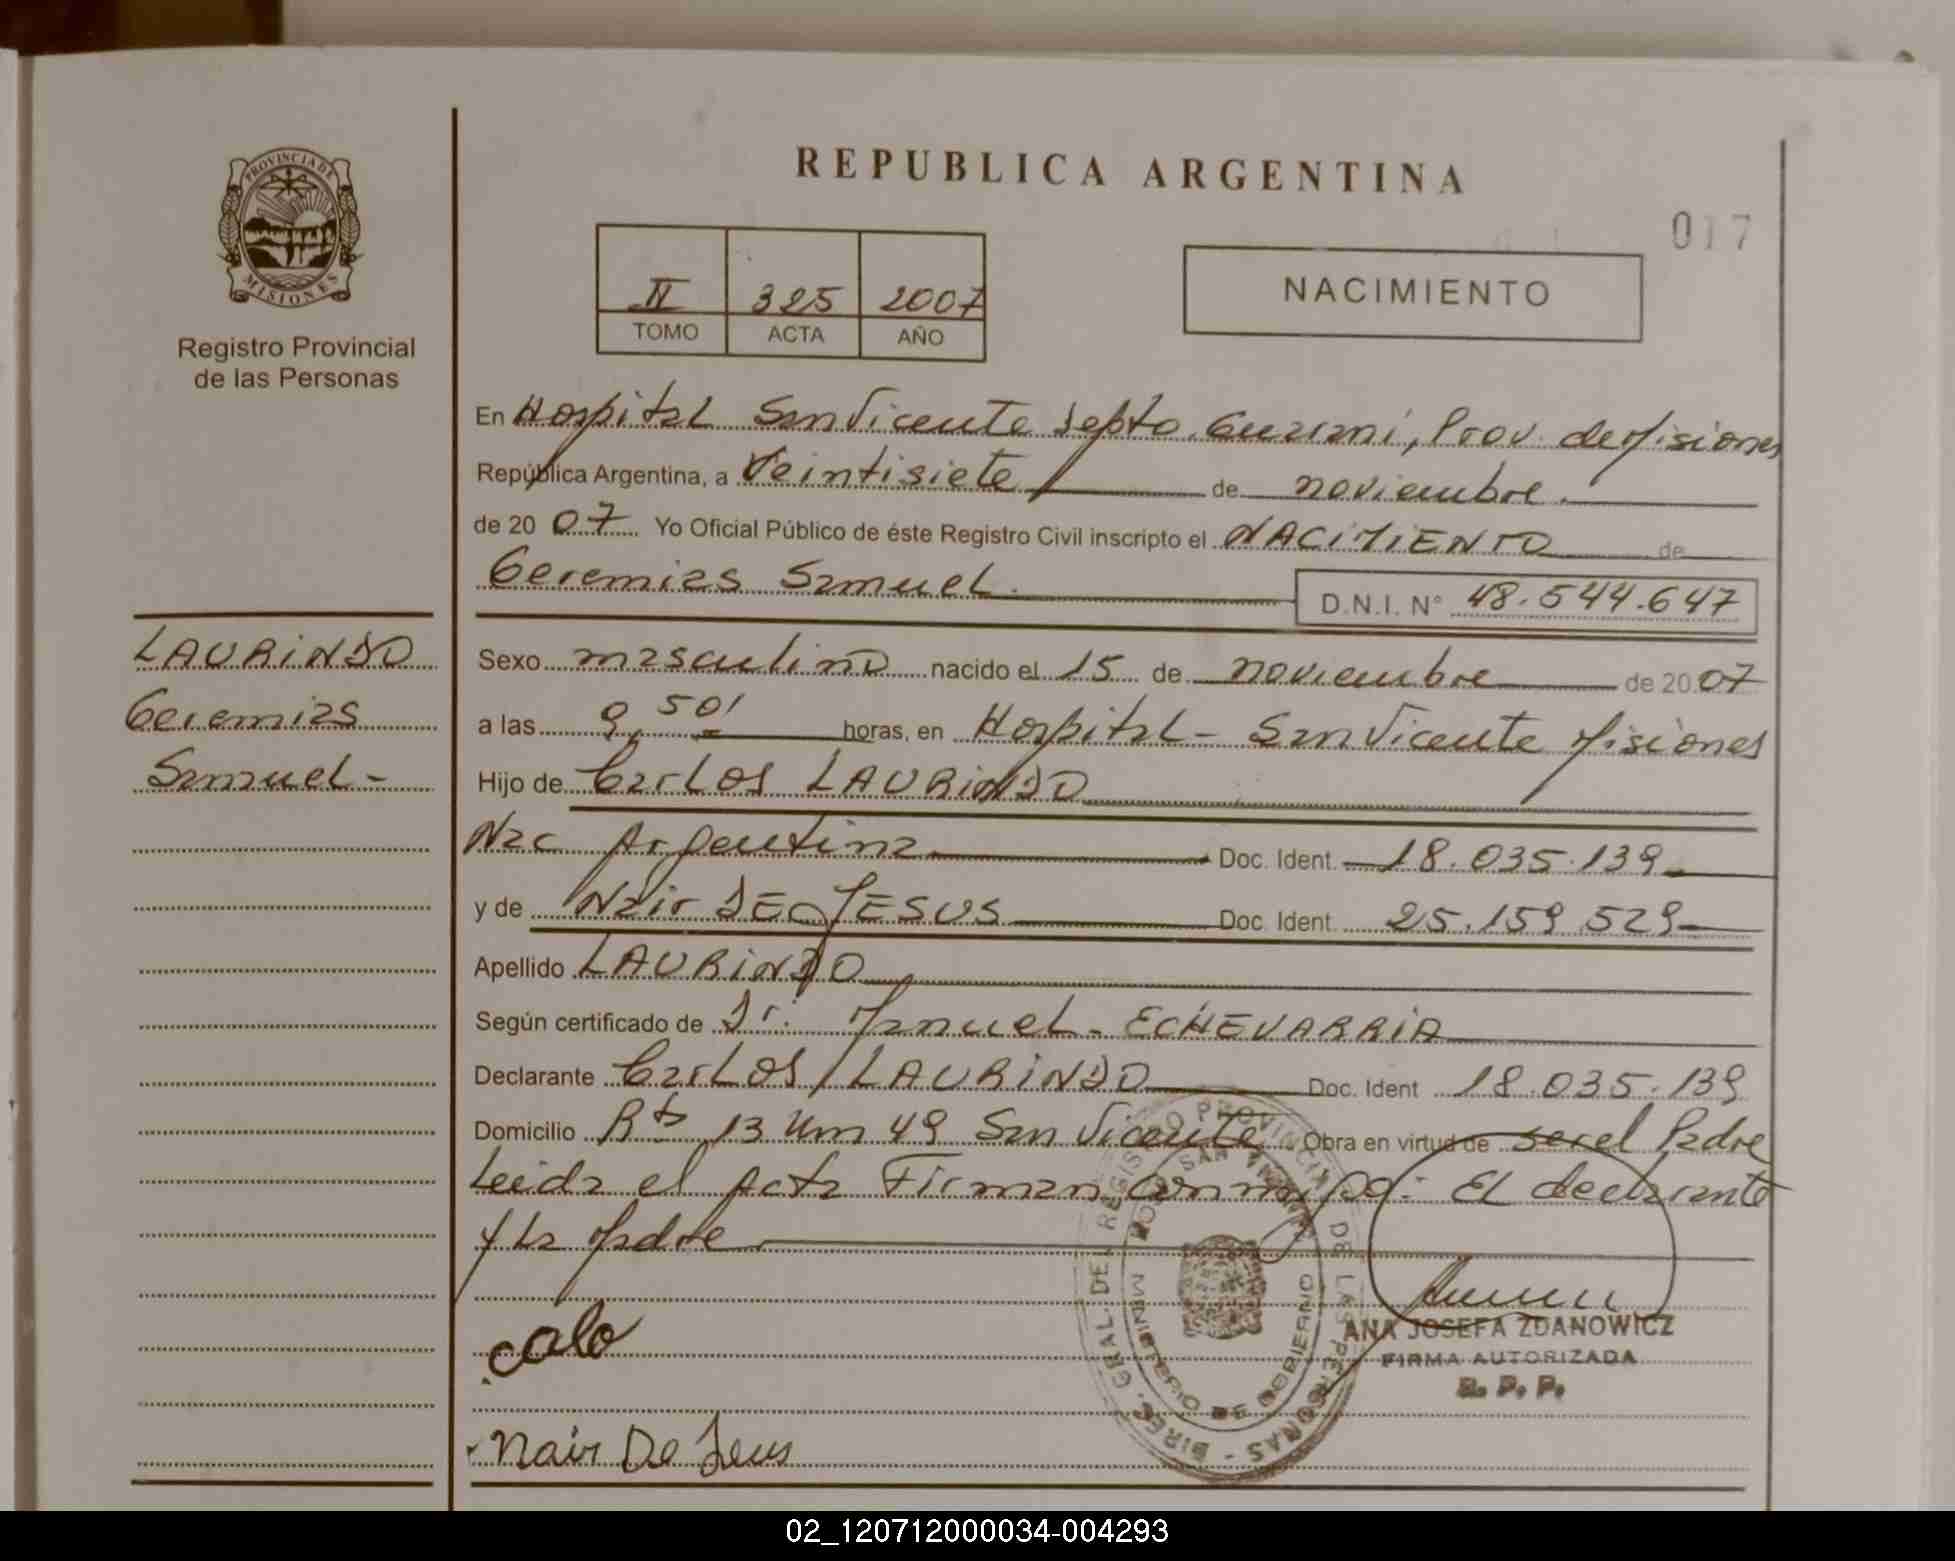 REPUBLICA ARGENTINA
017
PROVINCIA DE
MISIONES
Registro Provincial
de las Personas
II 325 2007
TOMO ACTA AÑO
NACIMIENTO
En Hospital San Vicente Depto. Guarani, Prov. de Misiones
República Argentina, a Veintisiete de noviembre.
de 20 07 Yo Oficial Público de éste Registro Civil inscripto el NACIMIENTO de
Geremias Samuel.
D.N.I. N° 48.544.647
LAURINDO
Geremias
Samuel-
Sexo masculino nacido el 15 de noviembre de 20 07
a las 9,50' horas, en Hospital - San Vicente Misiones
Hijo de Carlos LAURINDO
Nac Argentina Doc. Ident. 18.035.139
y de Nair DE JESUS Doc. Ident. 25.159.529
Apellido LAURINDO
Según certificado de Dr. Manuel - ECHEVARRIA
Declarante Carlos LAURINDO Doc. Ident 18.035.139
Domicilio Rta 13 Km 49 San Vicente Obra en virtud de ser el Padre
Leida el Acta Firman Conmigo: El declarante
y La Madre
calo
Nair De Jesus
DIREC. GRAL. DEL REGISTRO PROVINCIAL DE LAS PERSONAS
HOSP. SAN VICENTE
MINISTERIO DE GOBIERNO
ANA JOSEFA ZDANOWICZ
FIRMA AUTORIZADA
R. P. P.
02_120712000034-004293